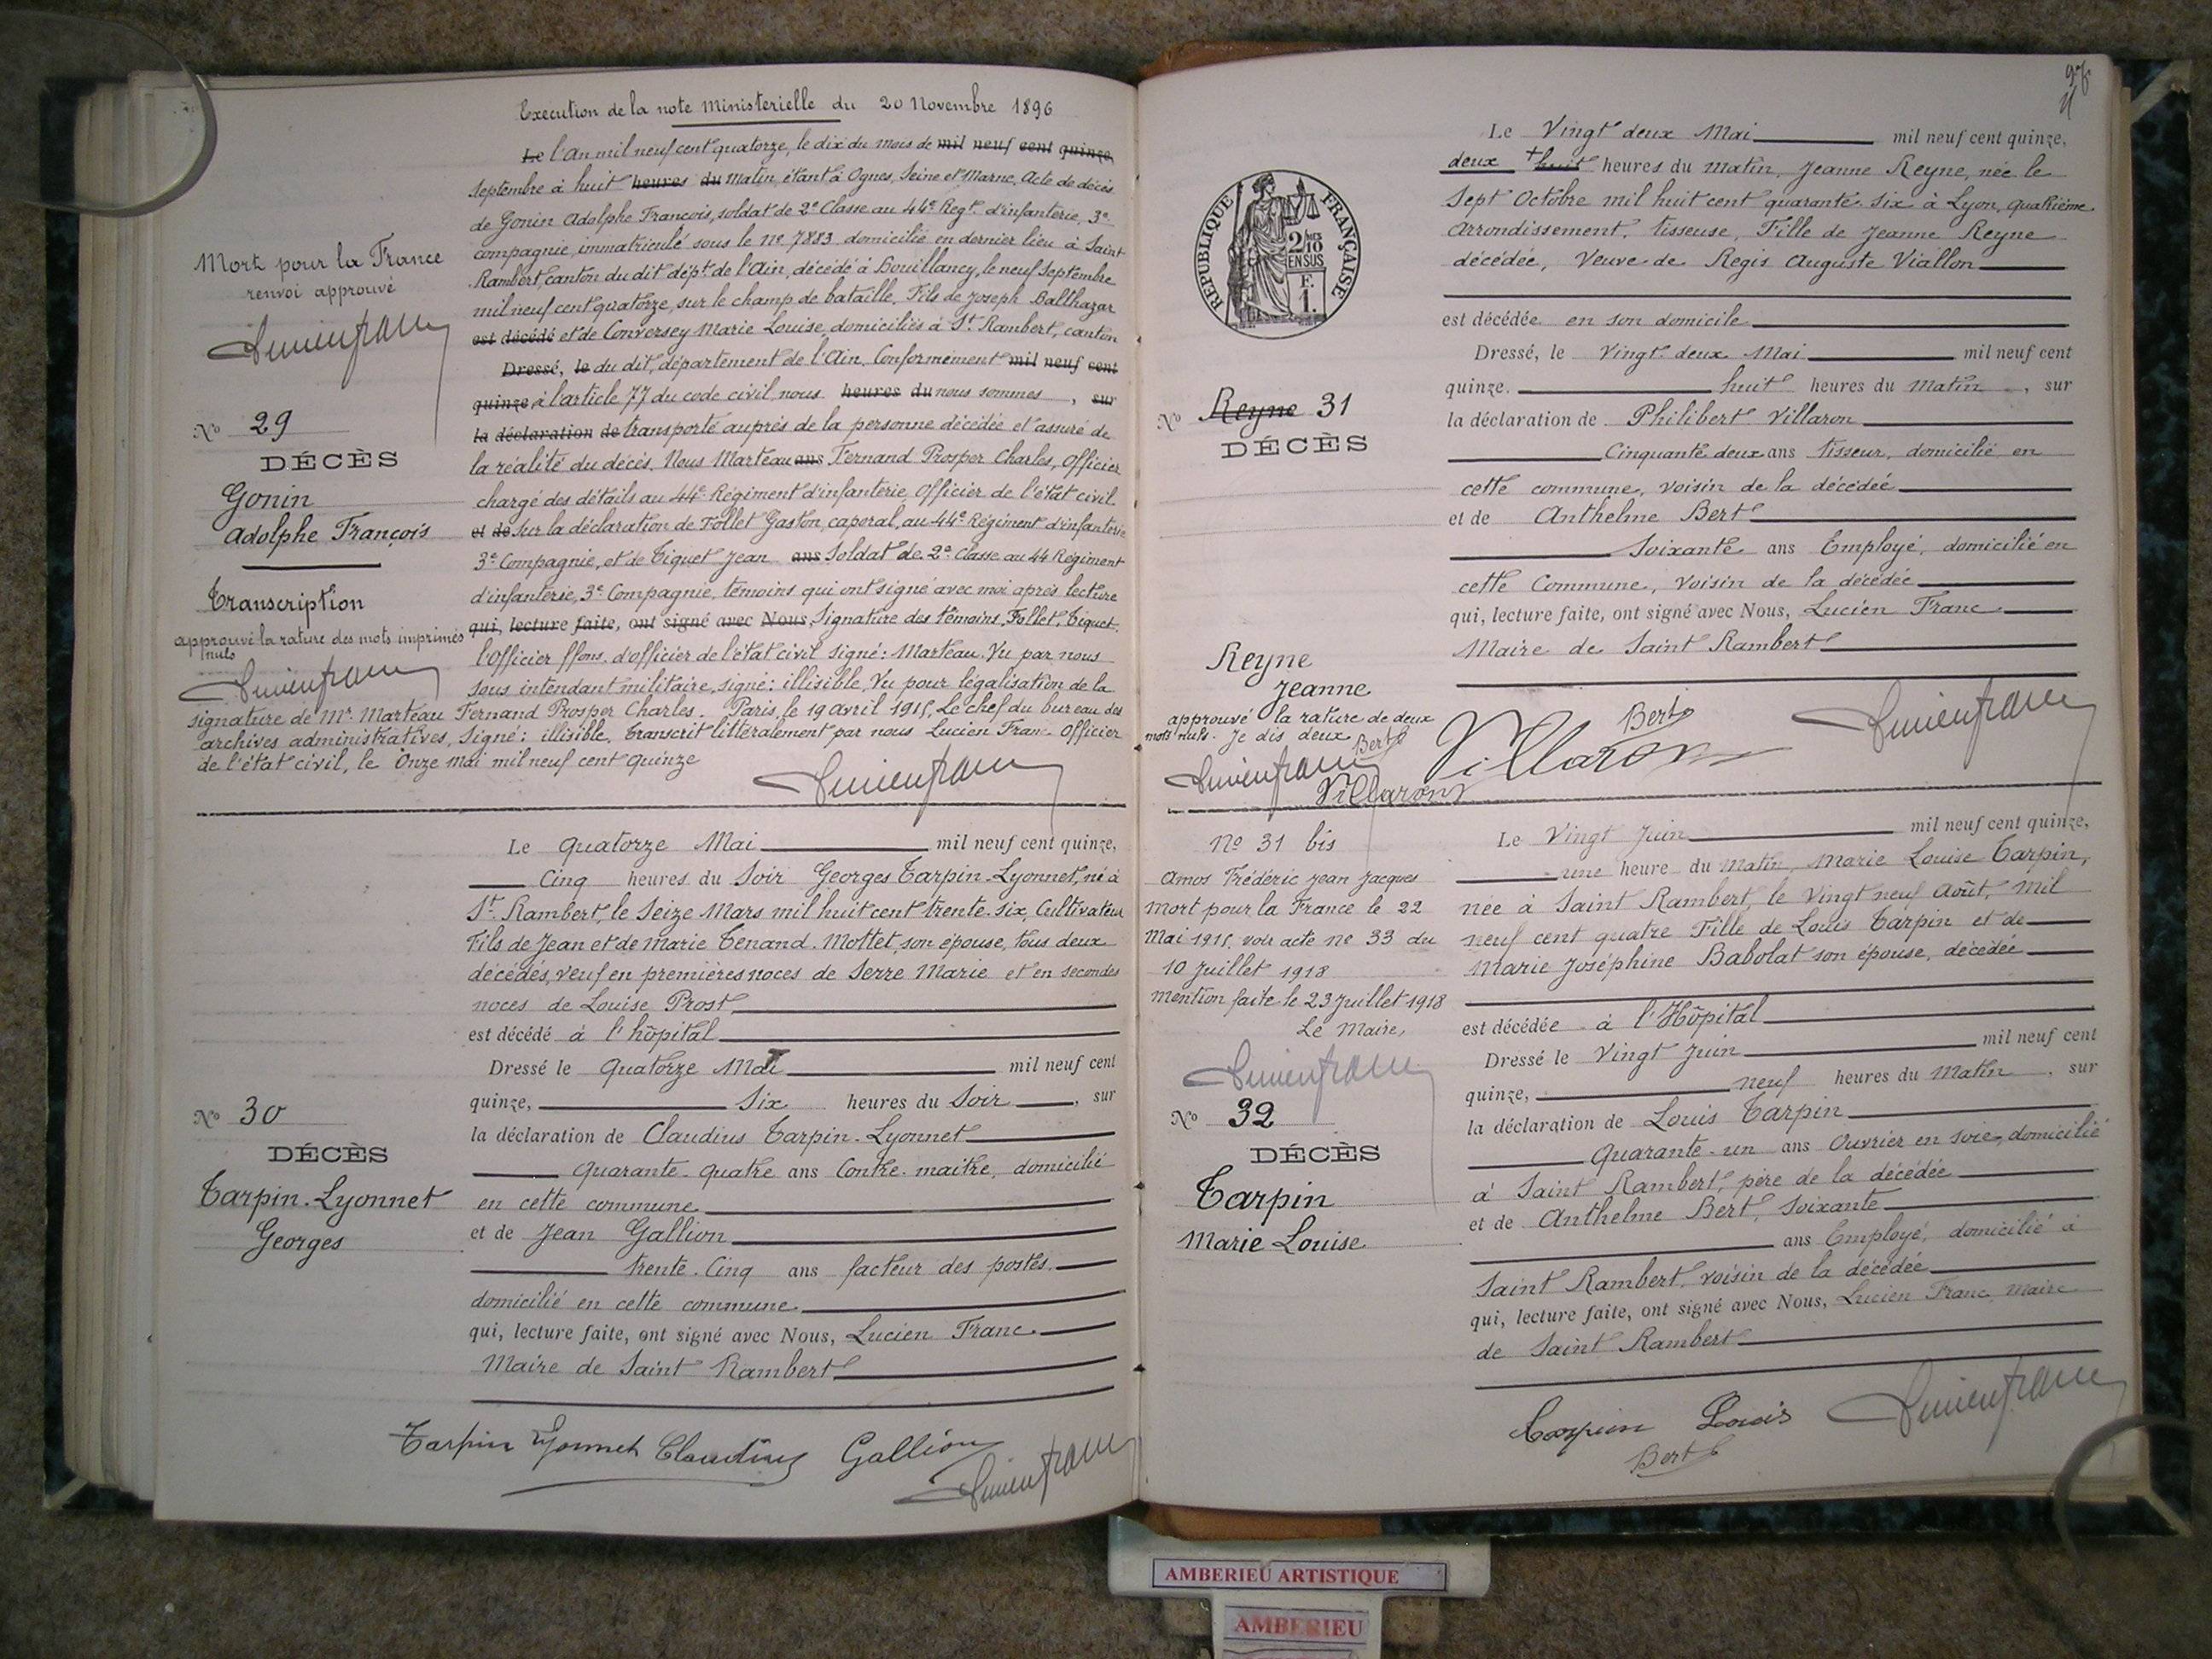 Execution de la note Ministerielle du 20 Novembre 1896
Le l'An mil neuf cent quatorze, le dix du mois de mil neuf cent quinze,
Septembre à huit heures du Matin, étant à Ognes, Seine et Marne, Acte de décès
de Gonin Adolphe François, soldat de 2e Classe au 44e Regt. d'infanterie, 3e
compagnie, immatriculé sous le No 7883 domicilié en dernier lieu à Saint
Rambert, canton du dit dépt. de l'Ain, décédé à Bouillancy, le neuf Septembre
mil neuf cent quatorze, sur le champ de bataille, Fils de Joseph Balthazar
est décédé et de Conversey Marie Louise, domiciliés à St. Rambert, canton
Dressé, le du dit, département de l'Ain. Conformément mil neuf cent
quinze à l'article 77 du code civil, nous heures du nous sommes, sur
la déclaration de transporté auprès de la personne décédée et assuré de
la réalité du décès. Nous Marteau ans Fernand Prosper Charles, Officier
chargé des détails au 44e Régiment d'infanterie, Officier de l'état civil
et de Sur la déclaration de Follet Gaston, caporal, au 44e Régiment d'infanterie
3e Compagnie, et de Tiquet Jean ans Soldat de 2e Classe au 44 Régiment
d'infanterie, 3e Compagnie, témoins qui ont signé avec moi après lecture
qui, lecture faite, ont signé avec Nous, Signature des témoins, Follet, Tiquet.
l'Officier ffons. d'officier de l'état civil signé: Marteau. Vu par nous
sous intendant militaire, signé: illisible, Vu pour légalisation de la
signature de Mr. Marteau Fernand Prosper Charles. Paris, le 19 avril 1915, Le chef du bureau des
archives administratives, Signé: illisible. Transcrit littéralement par nous Lucien Franc Officier
de l'état civil, le Onze mai mil neuf cent quinze
Lucien Franc
Mort pour la France
renvoi approuvé
Lucien Franc
No 29
DÉCÈS
Gonin
Adolphe François
Transcription
approuvé la rature des mots imprimés
nuls
Lucien Franc
Le quatorze Mai mil neuf cent quinze,
Cinq heures du Soir Georges Tarpin-Lyonnet, né à
St. Rambert, le Seize Mars mil huit cent trente-six, Cultivateur
Fils de Jean et de Marie Tenand-Mottet, son épouse, tous deux
décédés, veuf en premières noces de Serre Marie et en secondes
noces de Louise Prost,
est décédé à l'hôpital
Dressé le quatorze Mai mil neuf cent
quinze, Six heures du Soir, sur
la déclaration de Claudius Tarpin-Lyonnet
quarante-quatre ans Contre-maitre, domicilié
en cette commune
et de Jean Gallion
trente-Cinq ans facteur des postes.
domicilié en cette commune.
qui, lecture faite, ont signé avec Nous, Lucien Franc.
Maire de Saint Rambert
Tarpin Lyonnet Claudius Gallion
Lucien Franc
No 30
DÉCÈS
Tarpin-Lyonnet
Georges
RÉPUBLIQUE FRANÇAISE
2/10
EN SUS
F.
1.
Le Vingt deux Mai mil neuf cent quinze,
deux + huit heures du Matin, Jeanne Reyne, née le
Sept Octobre mil huit cent quarante-six à Lyon, quatrième
arrondissement. tisseuse, Fille de Jeanne Reyne
décédée, Veuve de Regis Auguste Viallon
est décédée en son domicile
Dressé, le Vingt-deux Mai mil neuf cent
quinze. huit heures du Matin, sur
la déclaration de Philibert Villaron
Cinquante deux ans tisseur, domicilié en
cette commune, voisin de la décédée
et de Anthelme Bert
Soixante ans Employé, domicilié en
cette Commune, Voisin de la décédée
qui, lecture faite, ont signé avec Nous, Lucien Franc.
Maire de Saint Rambert
Bert
Villaron
Lucien Franc
No Reyne 31
DÉCÈS
Reyne
Jeanne
approuvé la rature de deux
mots nuls. Je dis deux
Bert
Lucien Franc
Villaron
No 31 bis
Amos Frédéric Jean Jacques
Mort pour la France le 22
Mai 1915, voir acte no 33 du
10 Juillet 1918
Mention faite le 23 Juillet 1918
Le Maire,
Lucien Franc
Le Vingt Juin mil neuf cent quinze,
une heure du Matin, Marie Louise Tarpin,
née à Saint Rambert, le Vingt neuf Août, mil
neuf cent quatre Fille de Louis Tarpin et de
Marie Joséphine Babolat son épouse, décédée
est décédée à l'Hôpital
Dressé le Vingt Juin mil neuf cent
quinze, neuf heures du Matin, sur
la déclaration de Louis Tarpin
Quarante-un ans Ouvrier en soie, domicilié
à Saint Rambert, père de la décédée
et de Anthelme Bert, Soixante
ans Employé, domicilié à
Saint Rambert, voisin de la décédée
qui, lecture faite, ont signé avec Nous, Lucien Franc Maire
de Saint Rambert
Tarpin Louis
Bert
Lucien Franc
No 32
DÉCÈS
Tarpin
Marie Louise
AMBERIEU ARTISTIQUE
AMBERIEU